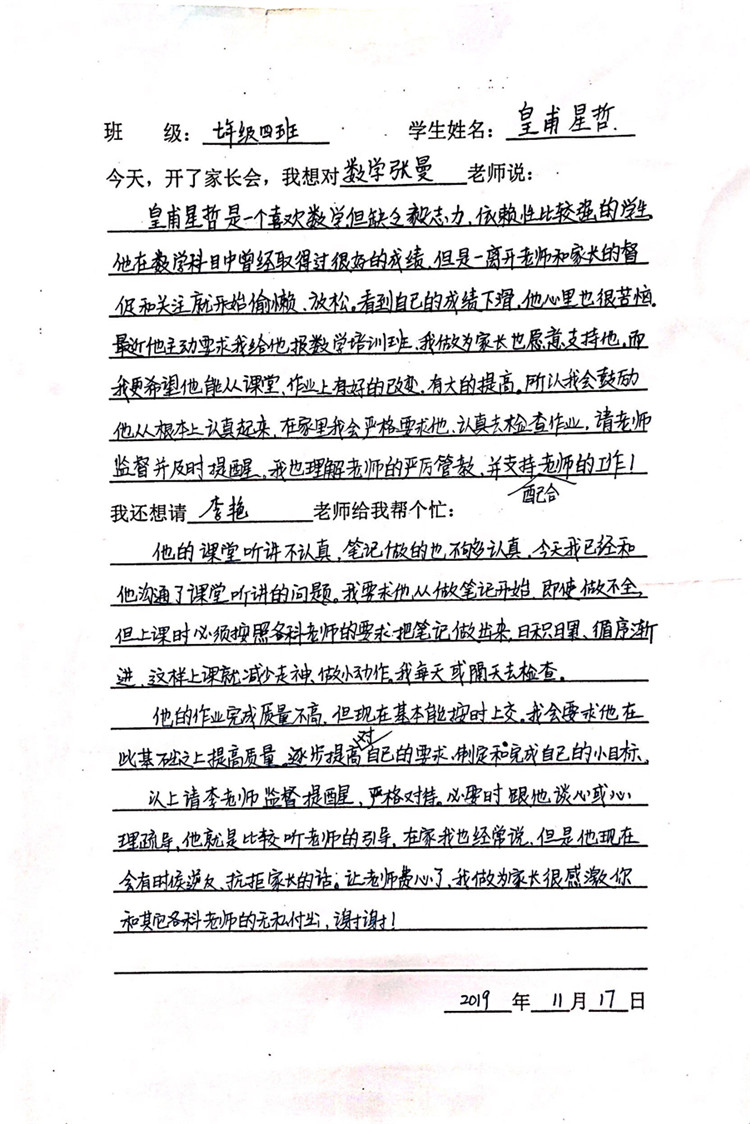 班 级：七年级四班 学生姓名：皇甫星哲.
今天，开了家长会，我想对数学张曼老师说：
皇甫星哲是一个喜欢数学但缺乏毅志力，依赖性比较强的学生
他在数学科目中曾经取得过很好的成绩，但是一离开老师和家长的督
促和关注就开始偷懒、放松。看到自己的成绩下滑，他心里也很苦恼。
最近他主动要求我给他报数学培训班，我做为家长也愿意支持他，而
我更希望他能从课堂、作业上有好的改变，有大的提高。所以我会鼓励
他从根本上认真起来，在家里我会严格要求他、认真去检查作业，请老师
监督并及时提醒，我也理解老师的严厉管教，并支持配合老师的工作！
我还想请 李艳 老师给我帮个忙：
他的课堂听讲不认真，笔记做的也不够认真，今天我已经和
他沟通了课堂听讲的问题。我要求他从做笔记开始，即使做不全，
但上课时必须按照各科老师的要求把笔记做出来，日积月累、循序渐
进、这样上课就减少走神、做小动作。我每天或隔天去检查。
他的作业完成质量不高，但现在基本能按时上交。我会要求他在
此基础之上提高质量，逐步提高对自己的要求、制定和完成自己的小目标。
以上请李老师监督提醒，严格对待。必要时跟他谈心或心
理疏导，他就是比较听老师的引导，在家我也经常说，但是他现在
会有时侯逆反、抗拒家长的话；让老师费心了，我做为家长很感激你
和其它各科老师的无私付出，谢谢！
2019 年 11 月 17 日